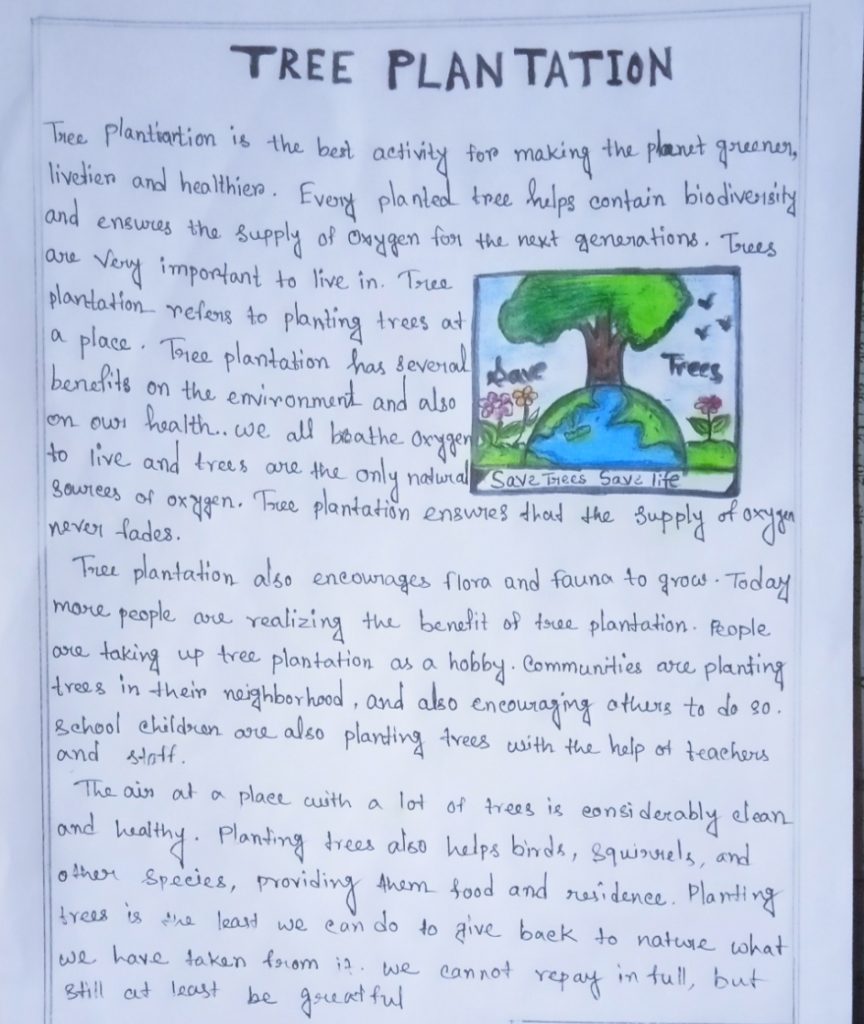 TREE PLANTATION
Tree plantiartion is the best activity for making the planet greener,
livelier and healthier. Every planted tree helps contain biodiversity
and ensures the supply of oxygen for the next generations. Trees
are very important to live in. Tree
plantation refers to planting trees at
a place. Tree plantation has several
benefits on the environment and also
on our health.. we all boathe oxygen
to live and trees are the only natural
Save Trees
Save Trees Save life
sources of oxygen. Tree plantation ensures that the supply of oxygen
never fades.
Tree plantation also encourages flora and fauna to grow. Today
more people are realizing the benefit of tree plantation. People
are taking up tree plantation as a hobby. Communities are planting
trees in their neighborhood, and also encouraging others to do so.
School children are also planting trees with the help of teachers
and staff.
The air at a place with a lot of trees is considerably clean
and healthy. Planting trees also helps birds, squirrels, and
other species, providing them food and residence. Planting
trees is the least we can do to give back to nature what
we have taken from it. we cannot repay in full, but
still at least be greatful